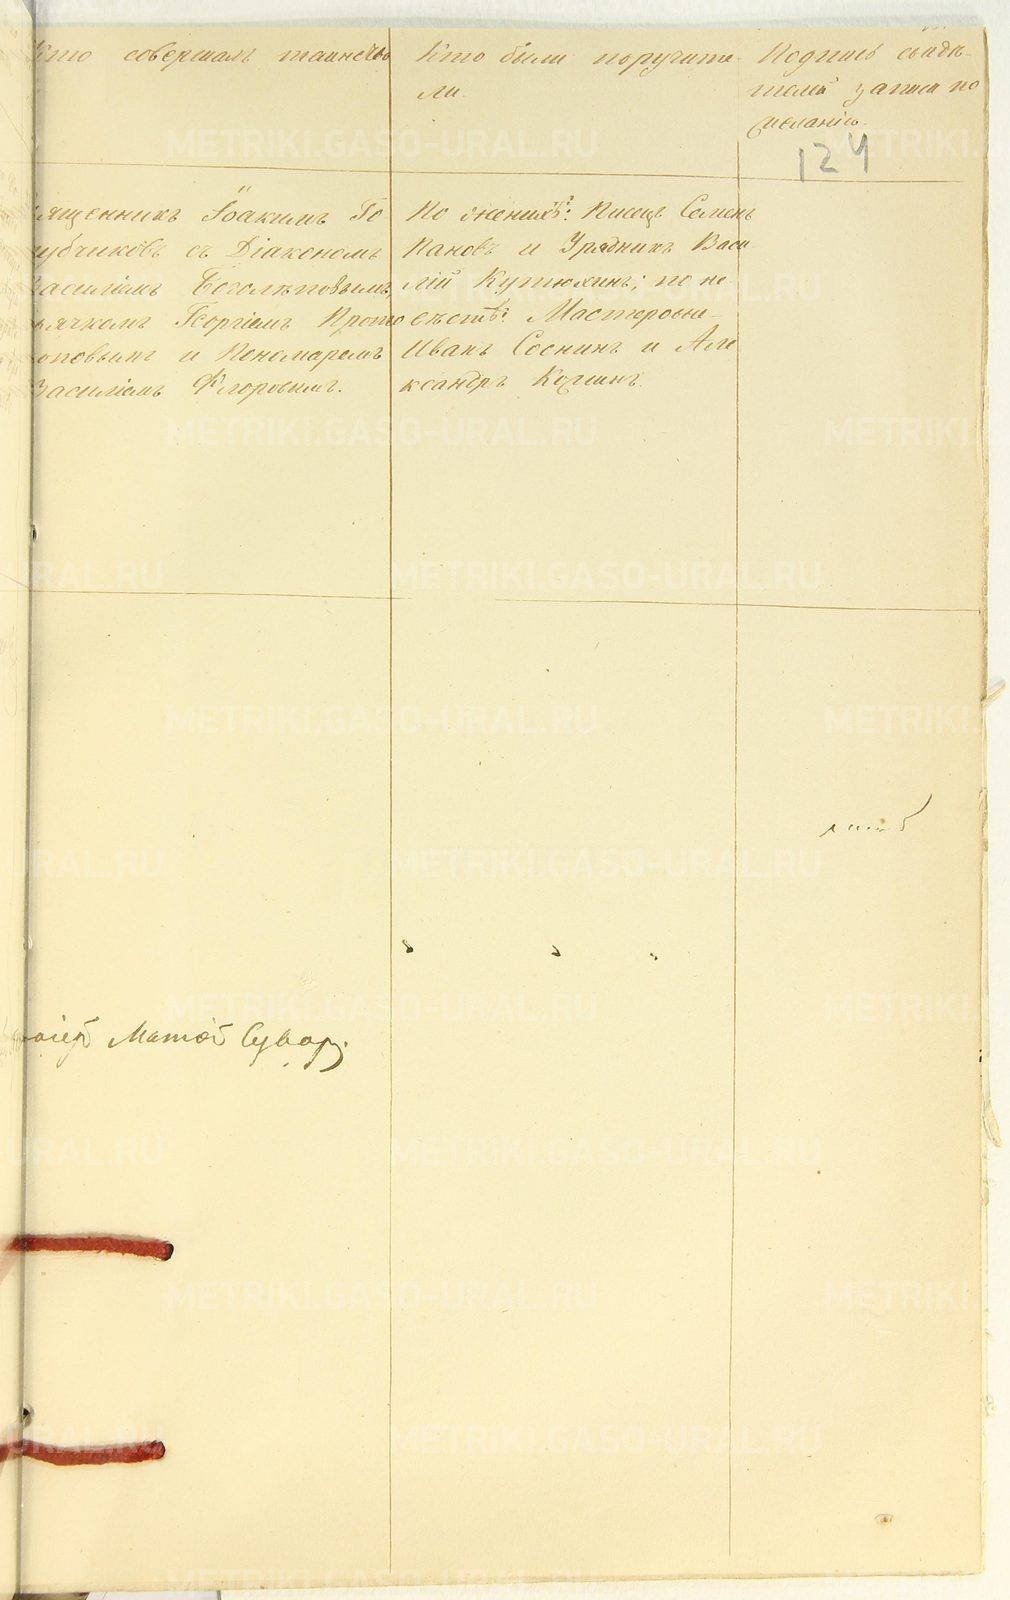 Кто совершалъ таинство
Кто были поручите-
ли.
Подпись свидѣ-
телей записи по
желанію.
124
священникъ Іоакимъ Го
лубчиковъ съ Діакономъ
Василіемъ Боголѣповымъ,
дьячкомъ Георгіемъ Прото
поповымъ и Пономаремъ
Василіемъ Флоровымъ.
По женихѣ: Писецъ Семенъ
Пановъ и Урядникъ Васи
лій Кутюхинъ; по не-
вѣстѣ: Мастерове-
Иванъ Соснинъ и Але
ксандръ
Матѳей Сувор
METRIKI.GASO-URAL.RU